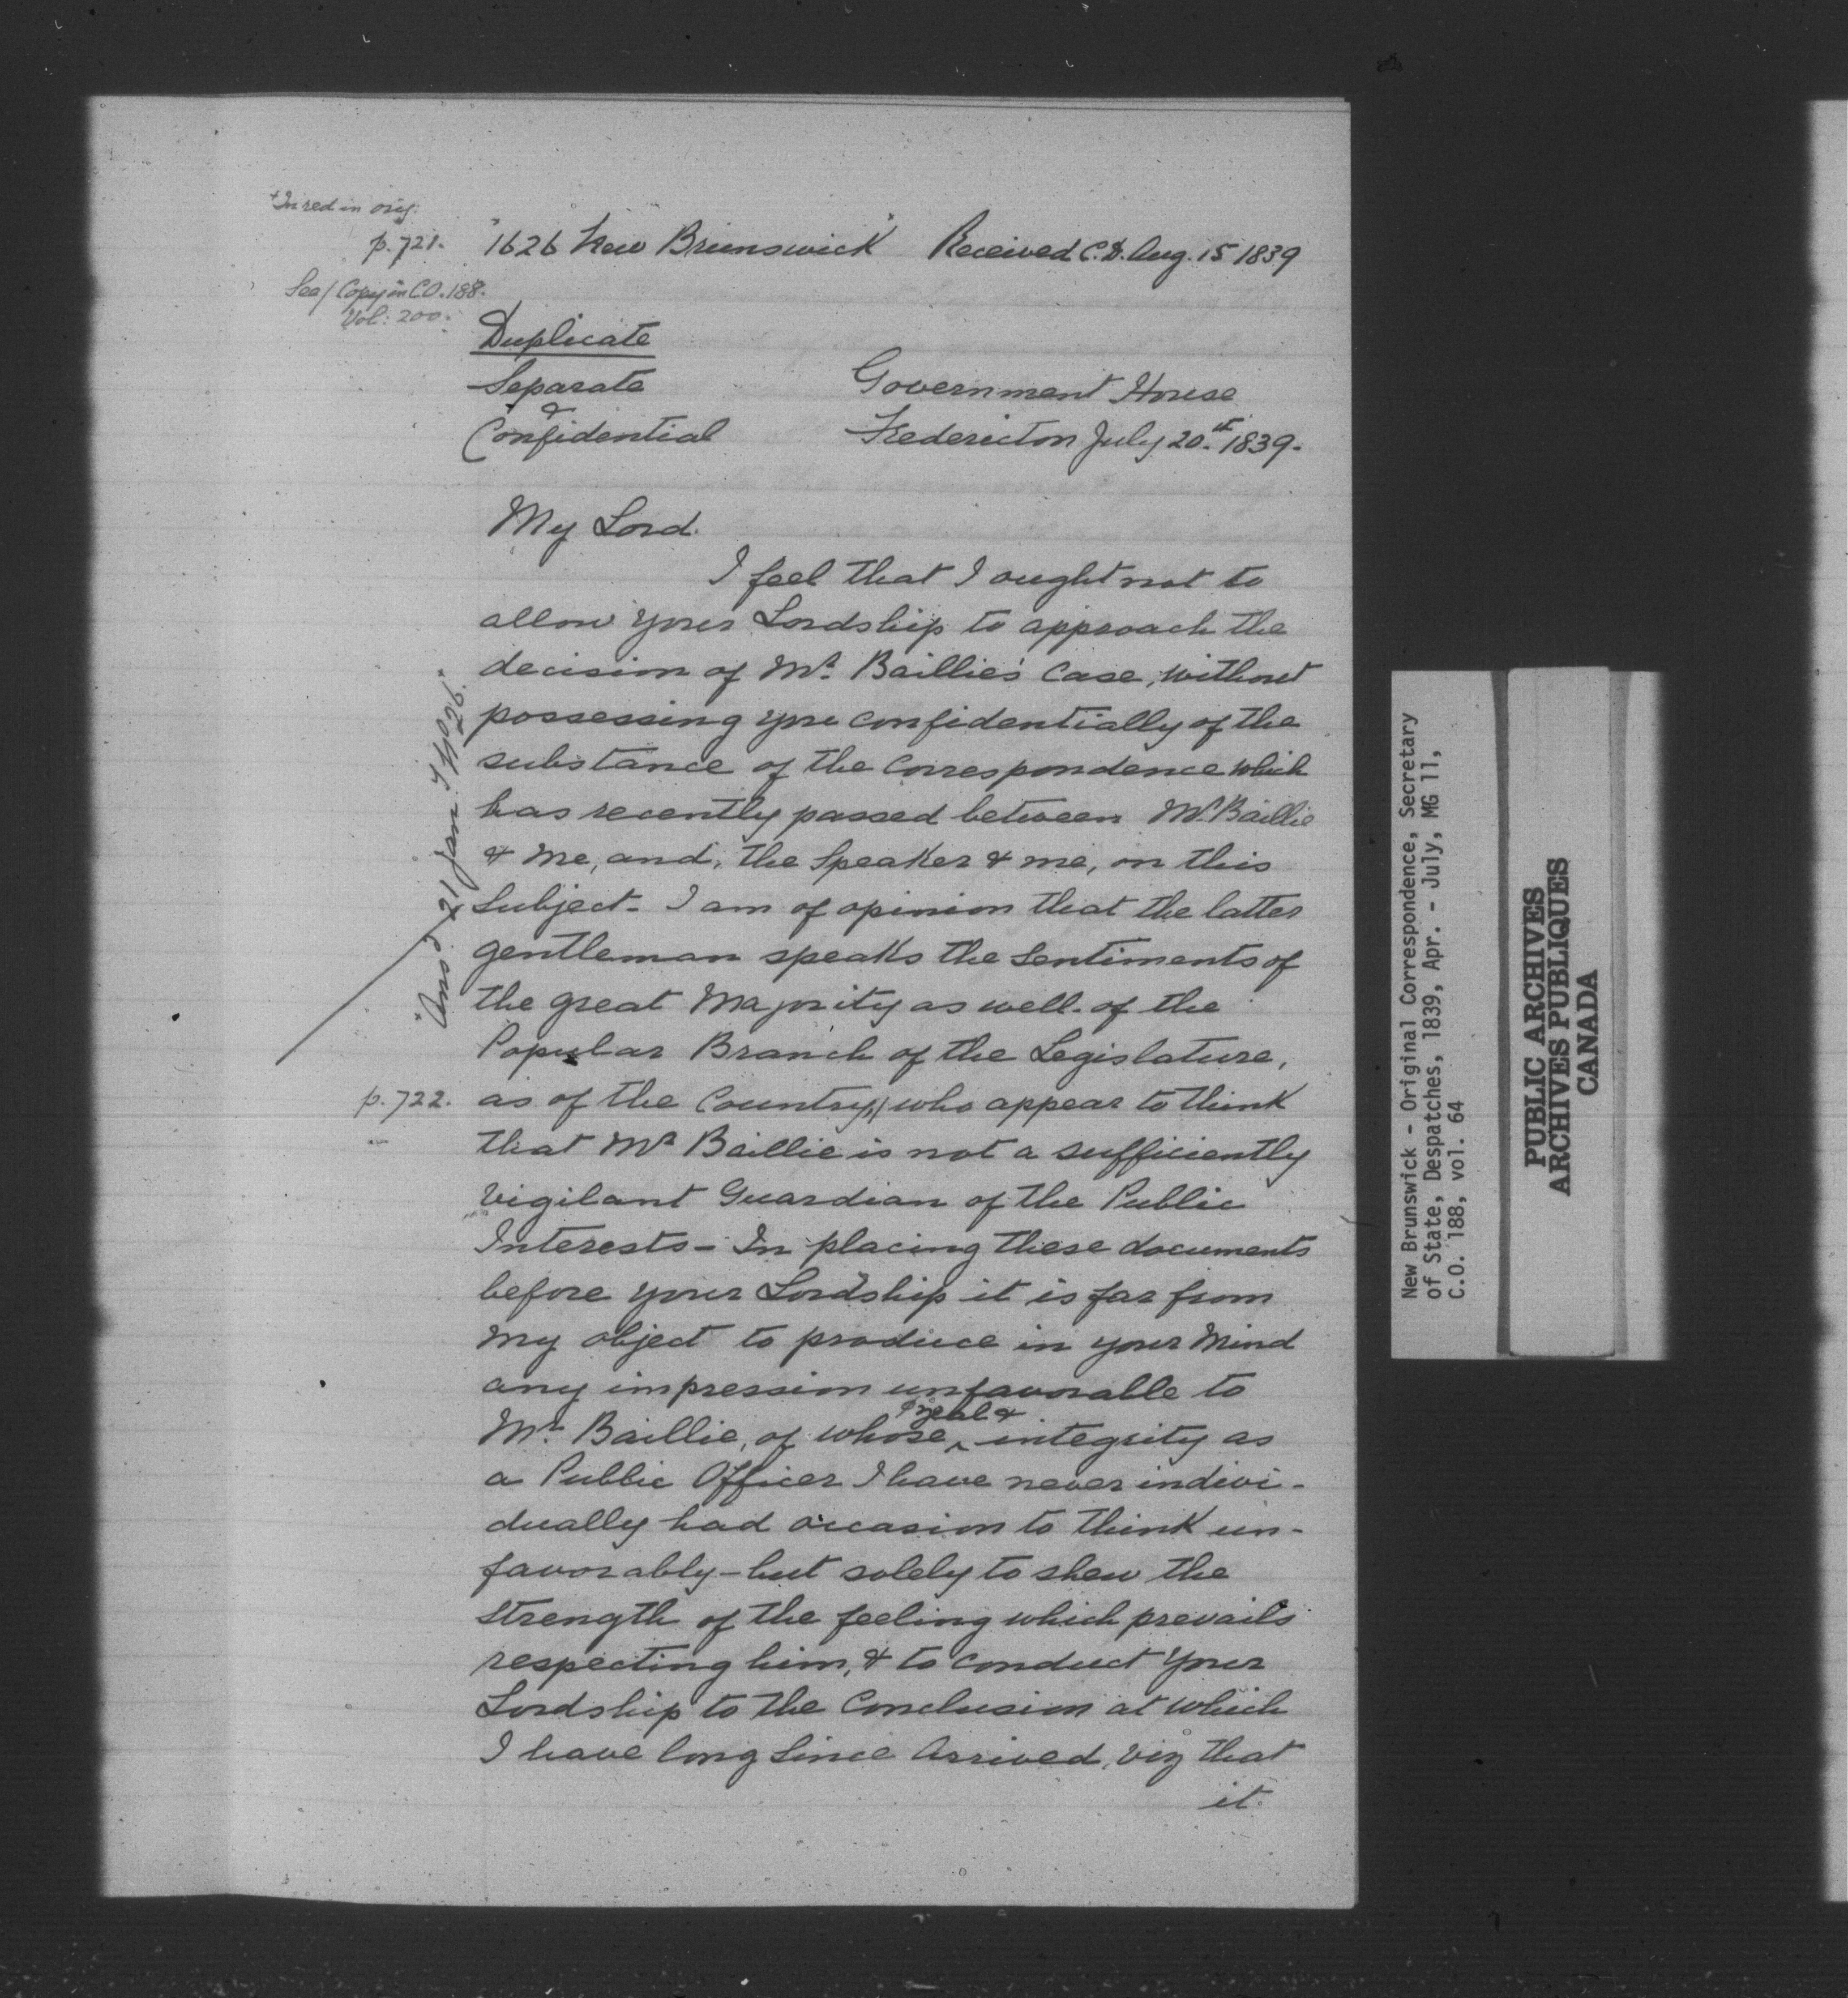 +In red in orig.
p.721. "1626 New Brunswick" Received C.D. Aug. 15 1839
See/Copy in C.O. 188.
Vol: 200.
Duplicate
Separate Government House
&
Confidential Fredericton July 20th 1839.
My Lord.
I feel that I ought not to
allow your Lordship to approach the
decision of Mr. Baillie's Case, without
possessing you confidentially of the
substance of the Correspondence which
has recently passed between Mr. Baillie
& me, and, the Speaker & me, on this
Subject - I am of opinion that the latter
gentleman speaks the Sentiments of
the great Majority as well of the
Popular Branch of the Legislature,
p.722. as of the Country,// who appear to think
that Mr Baillie is not a sufficiently
Vigilant Guardian of the Public
Interests - In placing these documents
before your Lordship it is far from
my object to produce in your Mind
any impression unfavorable to
zeal &
Mr. Baillie, of whose ^ integrity as
a Public Officer I have never indivi-
dually had occasion to think un-
favorably - but solely to shew the
strength of the feeling which prevails
respecting him, & to conduct your
Lordship to the Conclusion at which
I have long Since Arrived, viz that
it.
"Ansd 21 Jan. 26."
New Brunswick - Original Correspondence, Secretary
of State, Despatches, 1839, Apr. - July, MG 11,
C.O. 188, vol. 64
PUBLIC ARCHIVES
ARCHIVES PUBLIQUES
CANADA